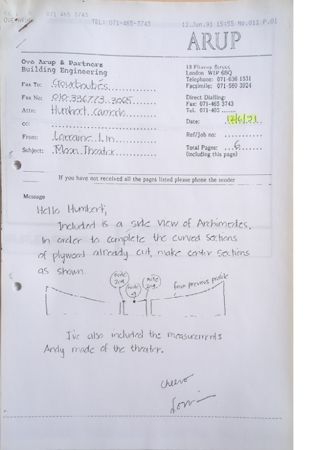 071 465 3743
TEL: 071-465-3743
12.Jun.91 15:55 No.011 P.01
ARUP
Ove Arup & Partners
Building Engineering
13 Fitzroy Street
London W1P 6BQ
Telephone: 071-636 1531
Facsimile: 071-580 3924
Direct Dialling:
Fax: 071-465 3743
Tel. 071-465
Fax To:
Fax No:
Attn: Humbert
cc:
From: Lorraine Lin
Subject: Moon Theater
Date: 12/6/91
Ref/Job no:
Total Pages: 6
(including this page)
If you have not received all the pages listed please phone the sender
Message
Hello Humbert,
Included is a side view of Archimedes.
In order to complete the curved sections
of plywood already cut, make center sections
as shown.
from previous profile
I've also included the measurements
Andy made of the theater.
cheers